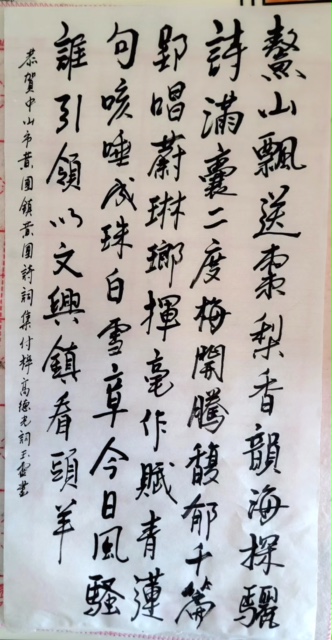 鰲山飄送棗梨香韻海探驪
詩滿囊二度梅開騰馥郁千篇
郢唱蔚琳瑯揮毫作賦青蓮
句咳唾成珠白雪章今日風騷
誰引領以文興鎮看頭羊
恭賀中山市黃圃鎮黃圃詩詞集付梓高德光詞玉書